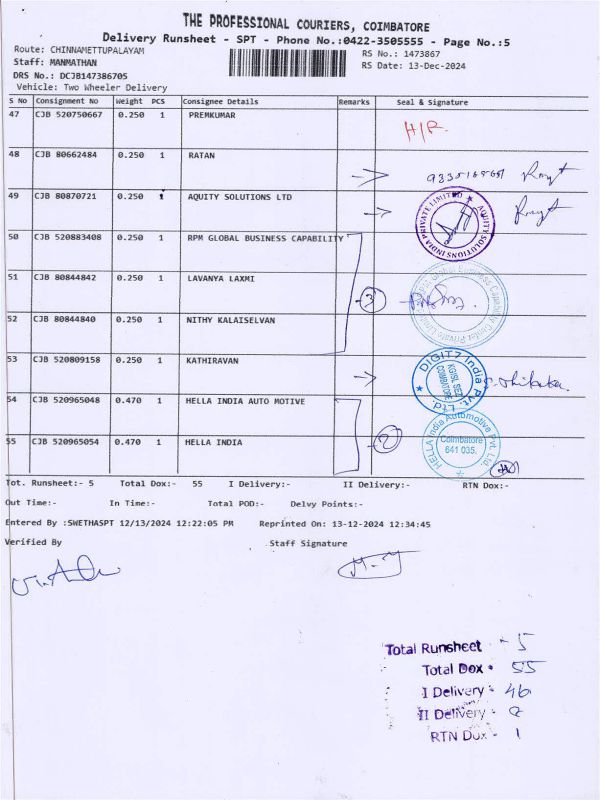 THE PROFESSIONAL COURIERS, COIMBATORE
Delivery Runsheet - SPT - Phone No.:0422-3505555 - Page No.:5
Route: CHINNAMETTUPALAYAM
RS No.: 1473867
Staff: MANMATHAN
RS Date: 13-Dec-2024
DRS No.: DCJB147386705
Vehicle: Two Wheeler Delivery
S No Consignment No Weight PCS Consignee Details Remarks Seal & Signature
47 CJB 520750667 0.250 1 PREMKUMAR H/R.
48 CJB 80662484 0.250 1 RATAN
49 CJB 80870721 0.250 1 AQUITY SOLUTIONS LTD
AQUITY SOLUTIONS INDIA PRIVATE LIMITED
50 CJB 520883408 0.250 1 RPM GLOBAL BUSINESS CAPABILITY
51 CJB 80844842 0.250 1 LAVANYA LAXMI
3
Global Business Capability Center Private Limited
52 CJB 80844840 0.250 1 NITHY KALAISELVAN
53 CJB 520809158 0.250 1 KATHIRAVAN
DIGIT7 India Pvt. Ltd.
KGISL SEZ
COIMBATORE
54 CJB 520965048 0.470 1 HELLA INDIA AUTO MOTIVE
55 CJB 520965054 0.470 1 HELLA INDIA
2
HELLA India Automotive Pvt. Ltd.
Coimbatore
641 035.
Tot. Runsheet:- 5 Total Dox:- 55 I Delivery:- II Delivery:- RTN Dox:-
Out Time:- In Time:- Total POD:- Delvy Points:-
Entered By :SWETHASPT 12/13/2024 12:22:05 PM Reprinted On: 13-12-2024 12:34:45
Verified By Staff Signature
Total Runsheet - 5
Total Dox - 55
I Delivery - 46
II Delivery -
RTN Dox - 1